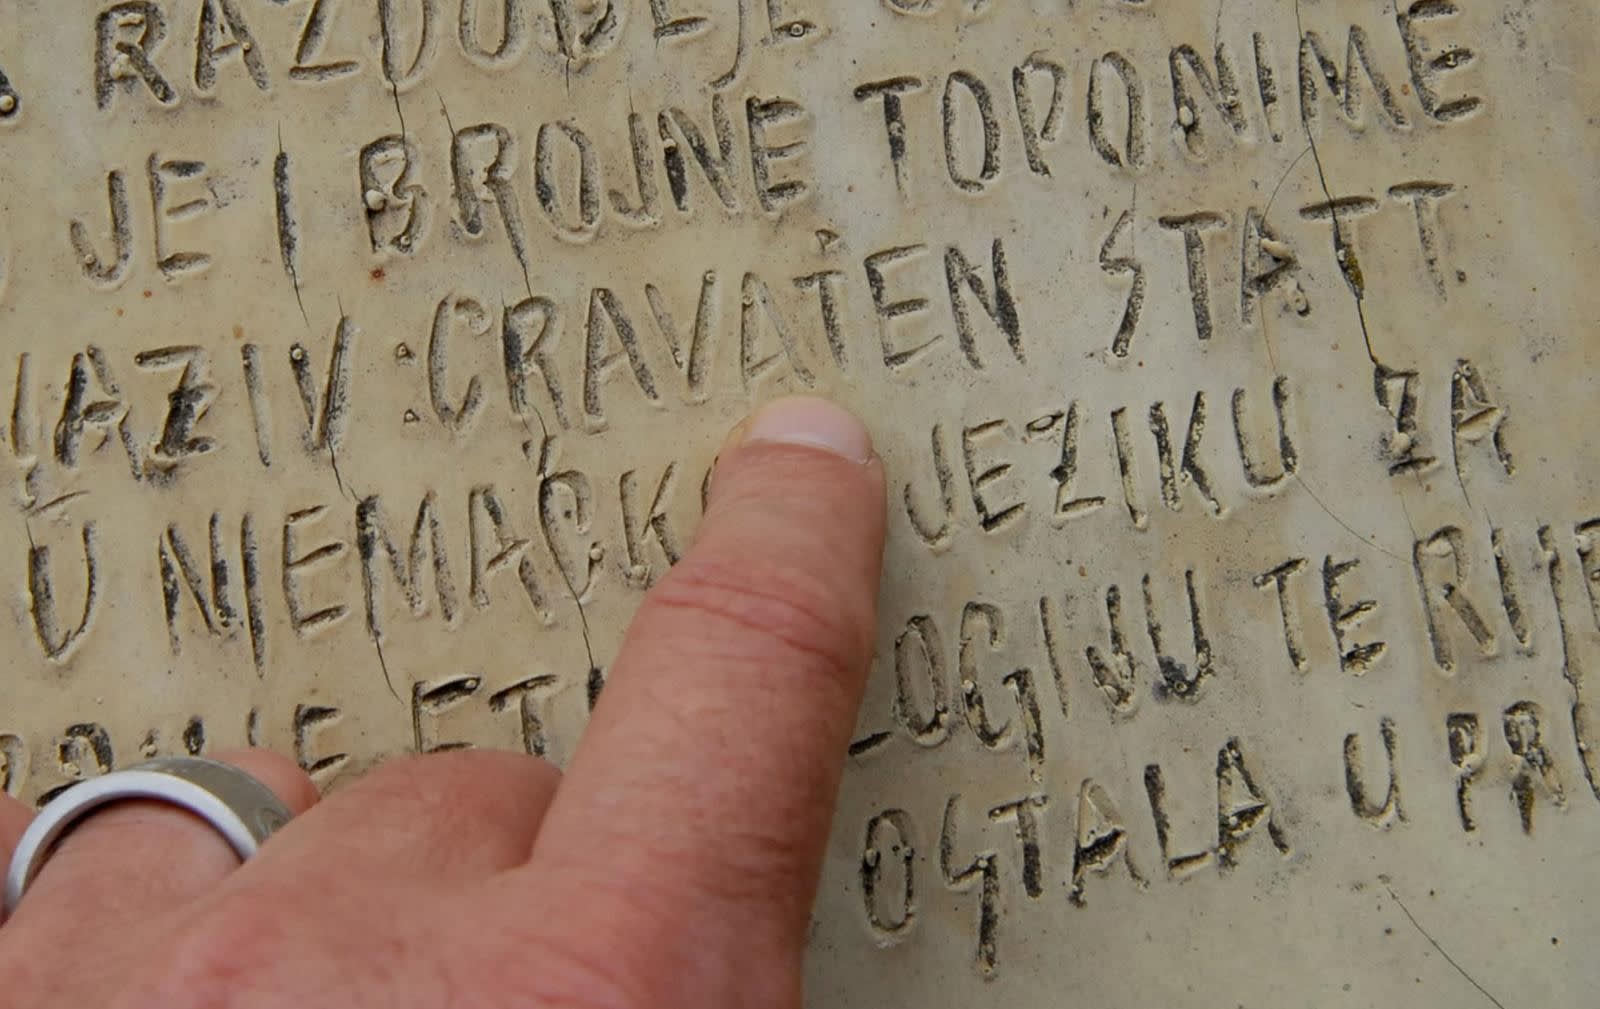 RAZDOBLJE
JE I BROJNE TOPONIME
NAZIV : CRAVATEN STATT.
U NJEMAČK JEZIKU ZA
LOGIJU TE RIJE
OSTALA U PR